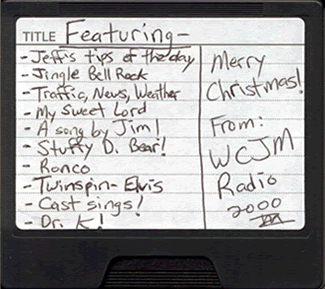 TITLE Featuring-
- Jeff's tips of the day
- Jingle Bell Rock
- Traffic, News, Weather
- My Sweet Lord
- A song by Jim!
- Stuffy D. Bear!
- Ronco
- Twinspin- Elvis
- Cast sings!
- Dr. K!
Merry
Christmas!
From:
WCJM
Radio
2000